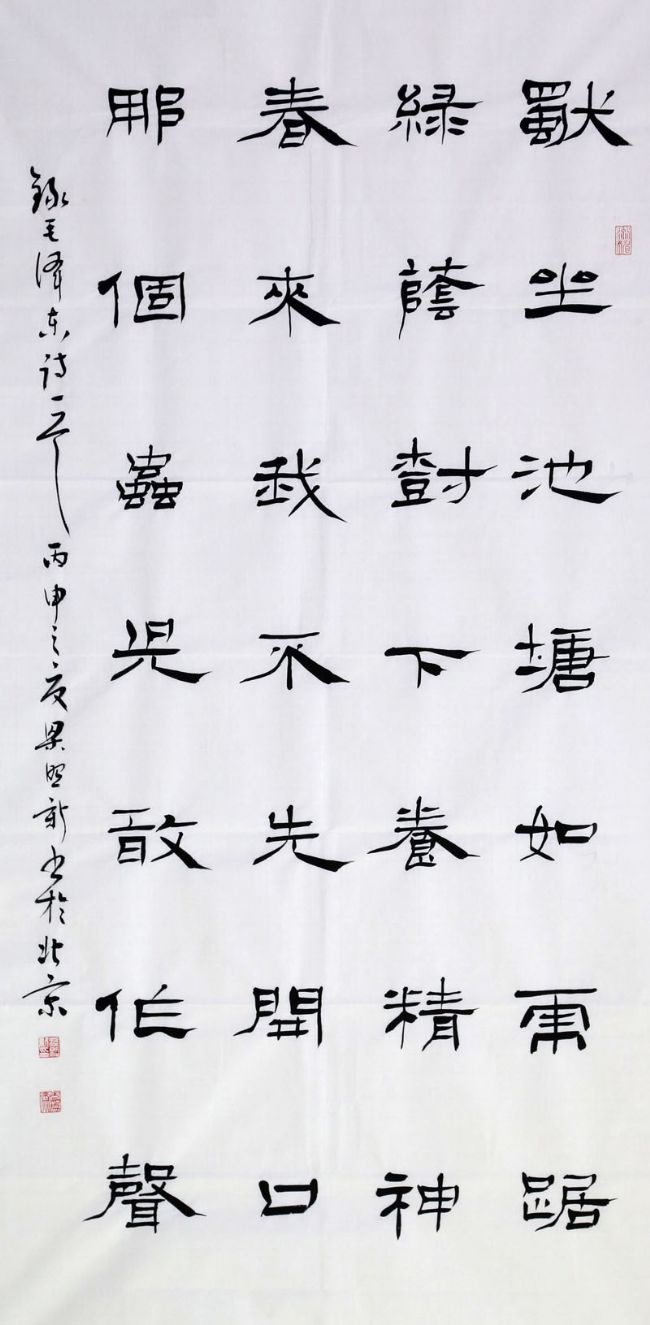 獨坐池塘如虎踞
綠蔭樹下養精神
春來我不先開口
那個蟲兒敢作聲
錄毛泽东诗一首 丙申之夏梁明新书於北京